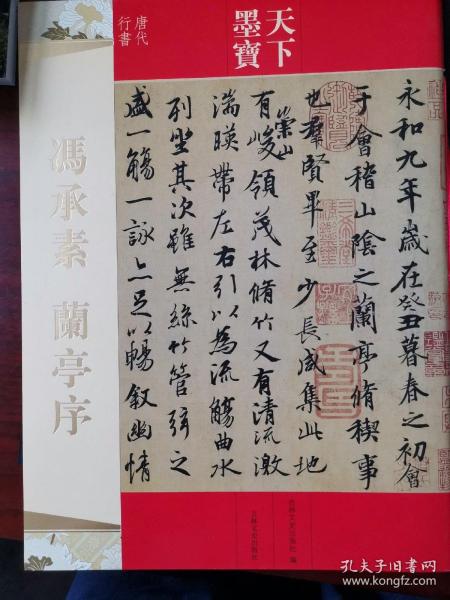 天下
墨寶
唐代
行書
馮承素 蘭亭序
永和九年歲在癸丑暮春之初會
于會稽山陰之蘭亭脩稧事
也羣賢畢至少長咸集此地
有崇山峻領茂林脩竹又有清流激
湍暎帶左右引以為流觴曲水
列坐其次雖無絲竹管弦之
盛一觴一詠亦足以暢叙幽情
吉林文史出版社 編
吉林文史出版社
孔夫子旧书网
www.kongfz.com